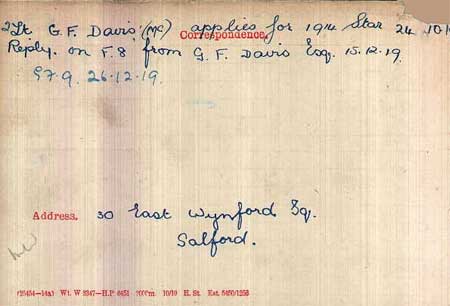 2Lt. G. F. Davis (MC) applies for 1914 Star 24.10.1
Correspondence.
Reply. on F. 8 from G. F. Davis Esq. 15.12.19.
26.12.19.
Address. 30 East Wynford Sq.
Salford.
Wt. W 3347—H.P. 6451 10/19 H. St. Est.